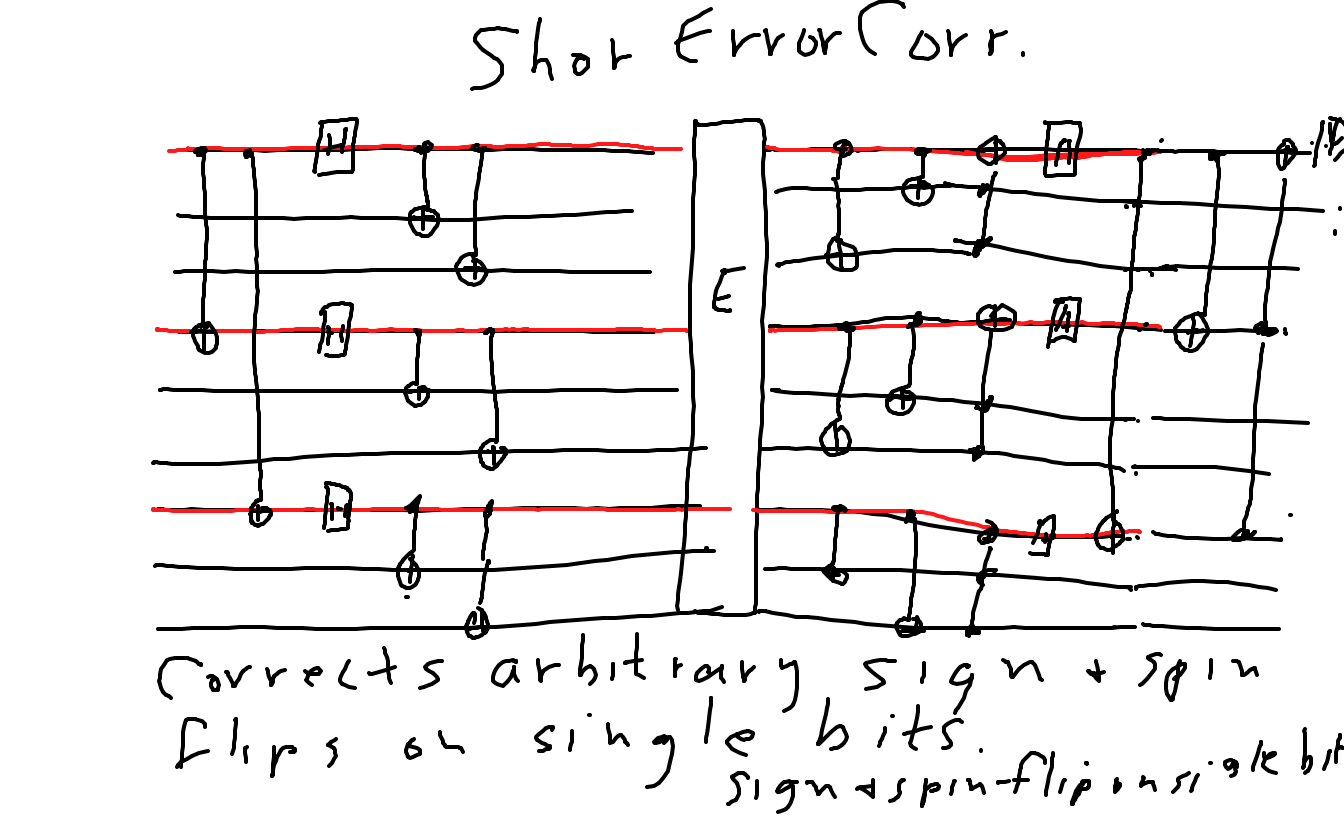 Shor Error Corr.
H
E
H
H
Corrects arbitrary sign + spin
flips on single bits.
sign + spin-flip on single bit